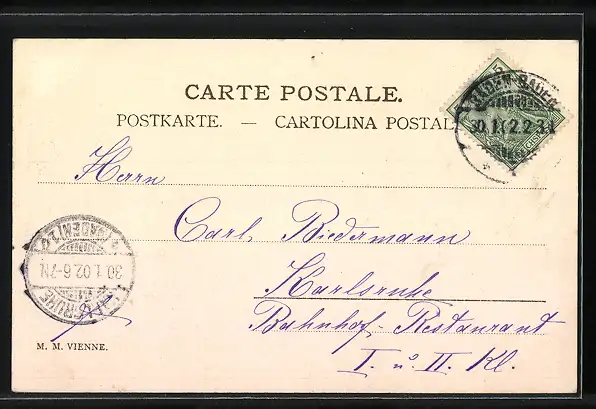 CARTE POSTALE.
POSTKARTE. — CARTOLINA POSTAL
BADEN-BADEN
30.1.02.2-3N
Herrn
Carl Biedermann
Karlsruhe
Bahnhof-Restaurant
I. u. II. Kl.
KARLSRUHE
30.1.02.6-7N
(BADEN) 2
M. M. VIENNE.